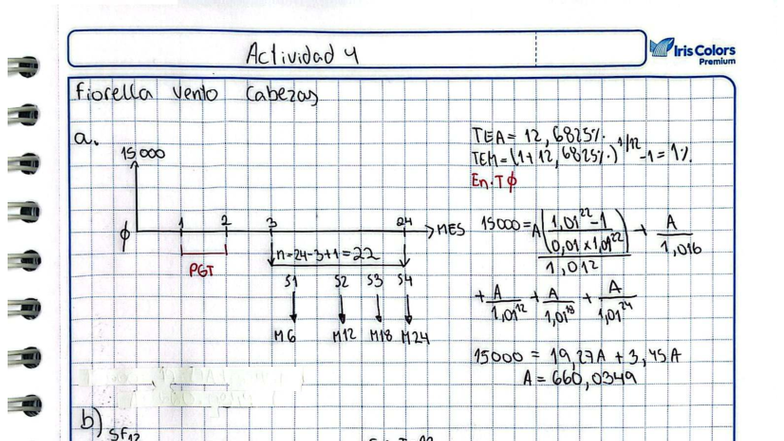 Actividad 4
Iris Colors
Premium
Fiorella Vento Cabezas
a.
15 000
φ 1 2 3 24 → MES
PGT
n=24-3+1=22
S1 S2 S3 S4
M6 M12 M18 M24
TEA = 12,6825%.
TEM = (1+12,6825%.)^1/12 -1 = 1%.
En.Tφ
15000 = A((1,01^22 - 1)/(0,01 x 1,01^22))/1,01^2 + A/1,01^6
+ A/1,01^12 + A/1,01^18 + A/1,01^24
15000 = 19,27A + 3,45A
A = 660,0349
b)
SF12